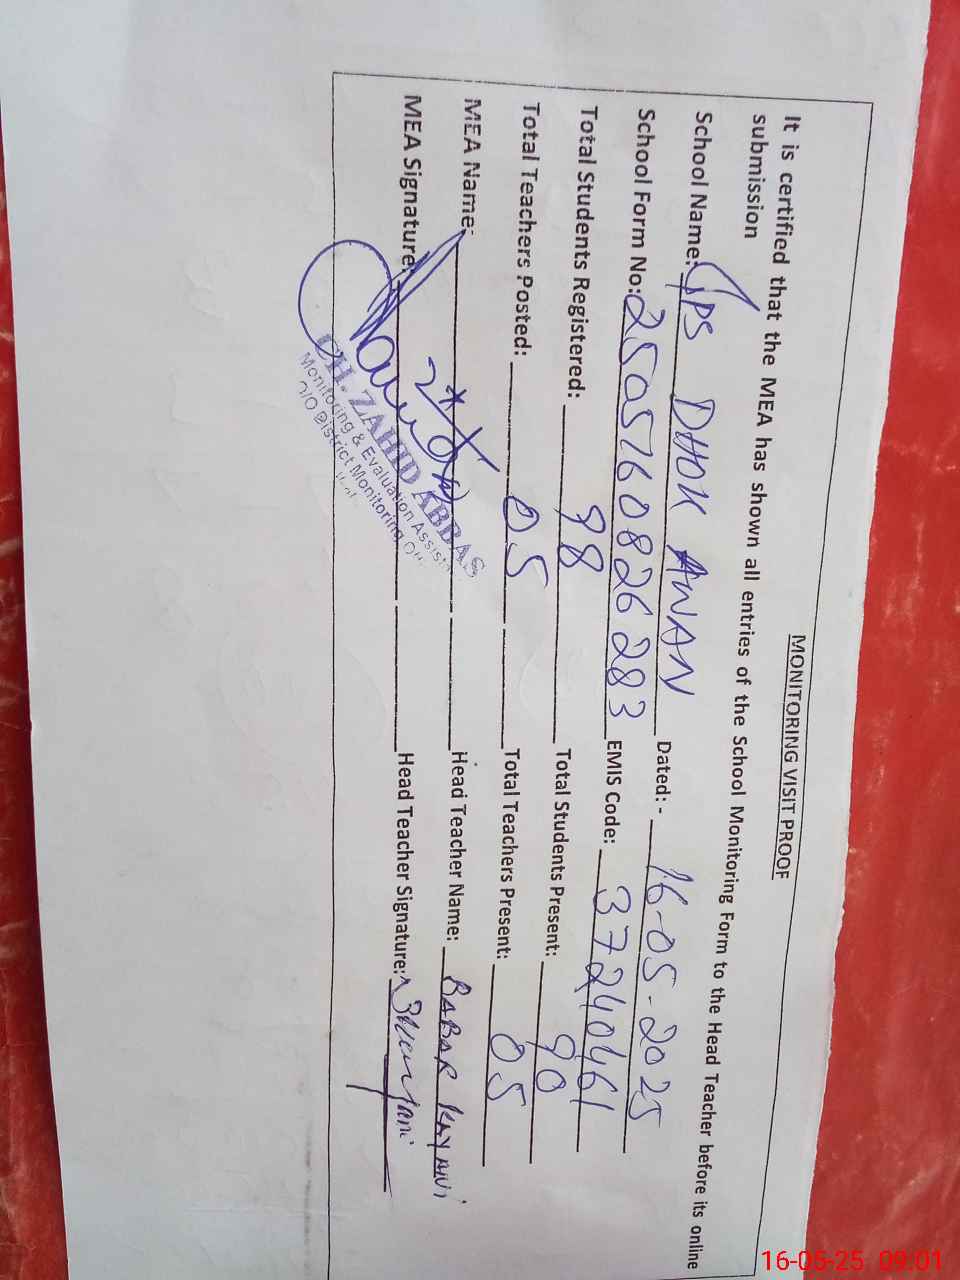 MONITORING VISIT PROOF
It is certified that the MEA has shown all entries of the School Monitoring Form to the Head Teacher before its online
submission
School Name: GPS DHOK AWAN Dated: - 16-05-2025
School Form No: 2505160826283 EMIS Code: 37240461
Total Students Registered: 98 Total Students Present: 90
Total Teachers Posted: 05 Total Teachers Present: 05
MEA Name: Head Teacher Name: BABAR KAYANI
MEA Signature: Head Teacher Signature:
CH. ZAHID ABBAS
Monitoring & Evaluation Assist
O/O District Monitoring
16-05-25 09:01